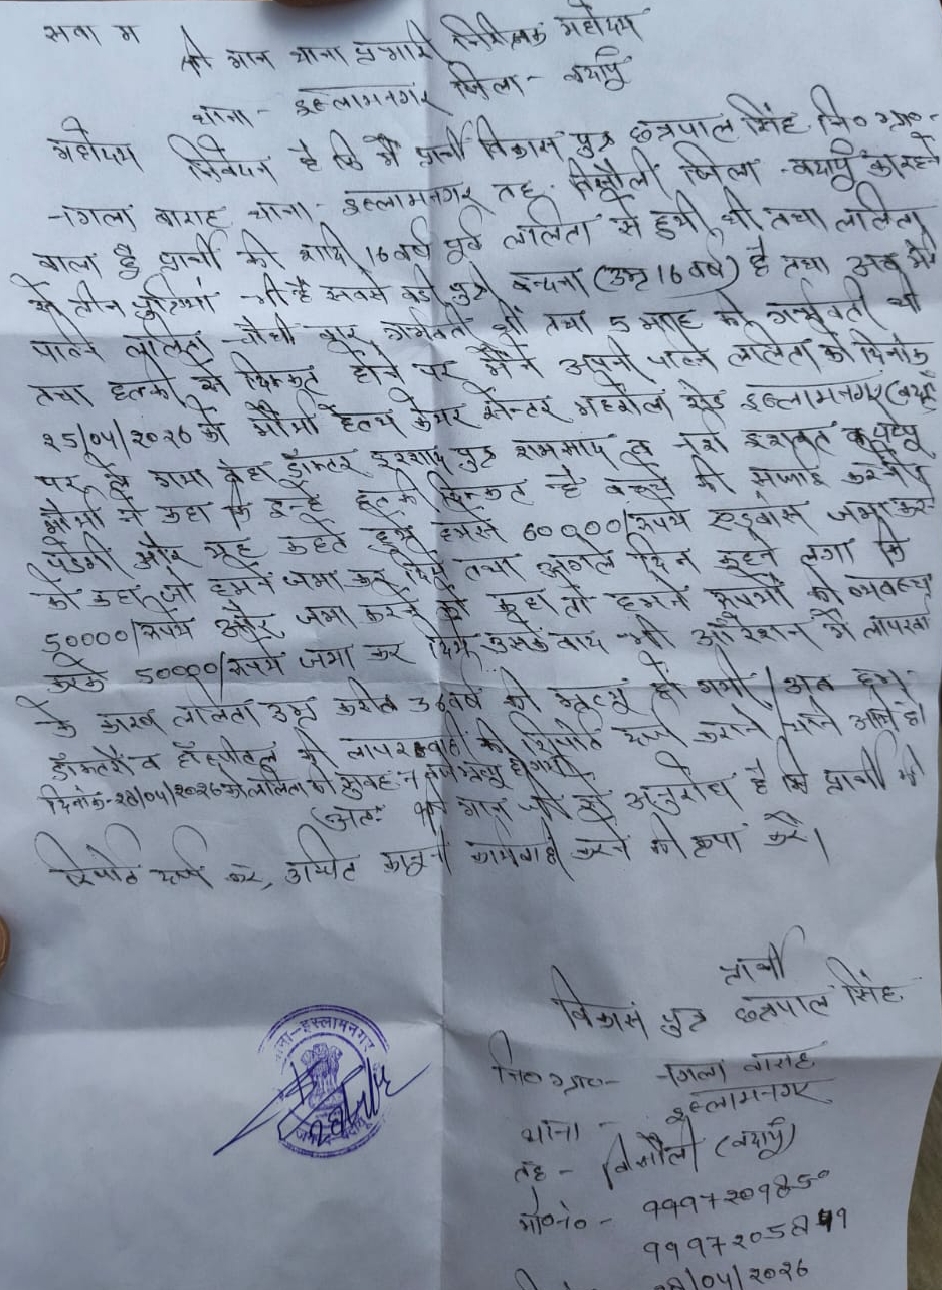 सेवा में
श्री मान थाना प्रभारी निरीक्षक महोदय
थाना- इस्लामनगर जिला- बदायूं
महोदय निवेदन है कि मैं प्रार्थी विकास पुत्र छत्रपाल सिंह नि० ग्रा०-
नगला बाराह थाना- इस्लामनगर तह. बिसौली जिला - बदायूं का रहने
वाला है प्रार्थी की शादी 16 वर्ष पूर्व ललिता से हुयी थी तथा ललिता
के तीन पुत्रियां भी है सबसे बडी पुत्री वन्दना (उम्र 16 वर्ष) है तथा अब मेरी
पत्नि ललिता चौथी बार गर्भवती थी तथा 5 माह की गर्भवती थी
तथा हल्की सी दिक्कत होने पर मैंने अपनी पत्नि ललिता को दिनांक
२5/04/२०२6 को हैल्थ केयर सेन्टर रोड इस्लामनगर (बदायूं)
पर ले गया वहा डॉक्टर पुत्र व
ने कहा कि इन्हे हल्की दिक्कत है बच्चे की सफाई करनी
पडेगी और यह कहते हुये हमसे 60000/रूपये एडवांस जमा करने
को कहा जो हमने जमा कर दिये तथा अगले दिन कहने लगा कि
50000/रूपये और जमा करने को कहा तो हमने रूपयों की व्यवस्था
करके 50000/रूपये जमा कर दिये उसके बाद भी ऑपरेशन में लापरवाही
के कारण ललिता उम्र करीब 36 वर्ष की मृत्यु हो गयी / अब हम
डॉक्टरों व हॉस्पीटल की लापरवाही की रिपोर्ट दर्ज कराने थाने आये है।
दिनांक-२8/04/२०२6 को ललिता की सुबह बजे मृत्यु हो गयी
अतः श्री मान जी से अनुरोध है कि प्रार्थी की
रिपोर्ट दर्ज कर, उचित कानूनी कार्यवाही करने की कृपा करें।
प्रार्थी
विकास पुत्र छत्रपाल सिंह
नि० ग्रा०- नगला बाराह
थाना- इस्लामनगर
तह- बिसौली (बदायूं)
मो०न०-
थाना-इस्लामनगर
जनपद-बदायूँ
/04/२०२6